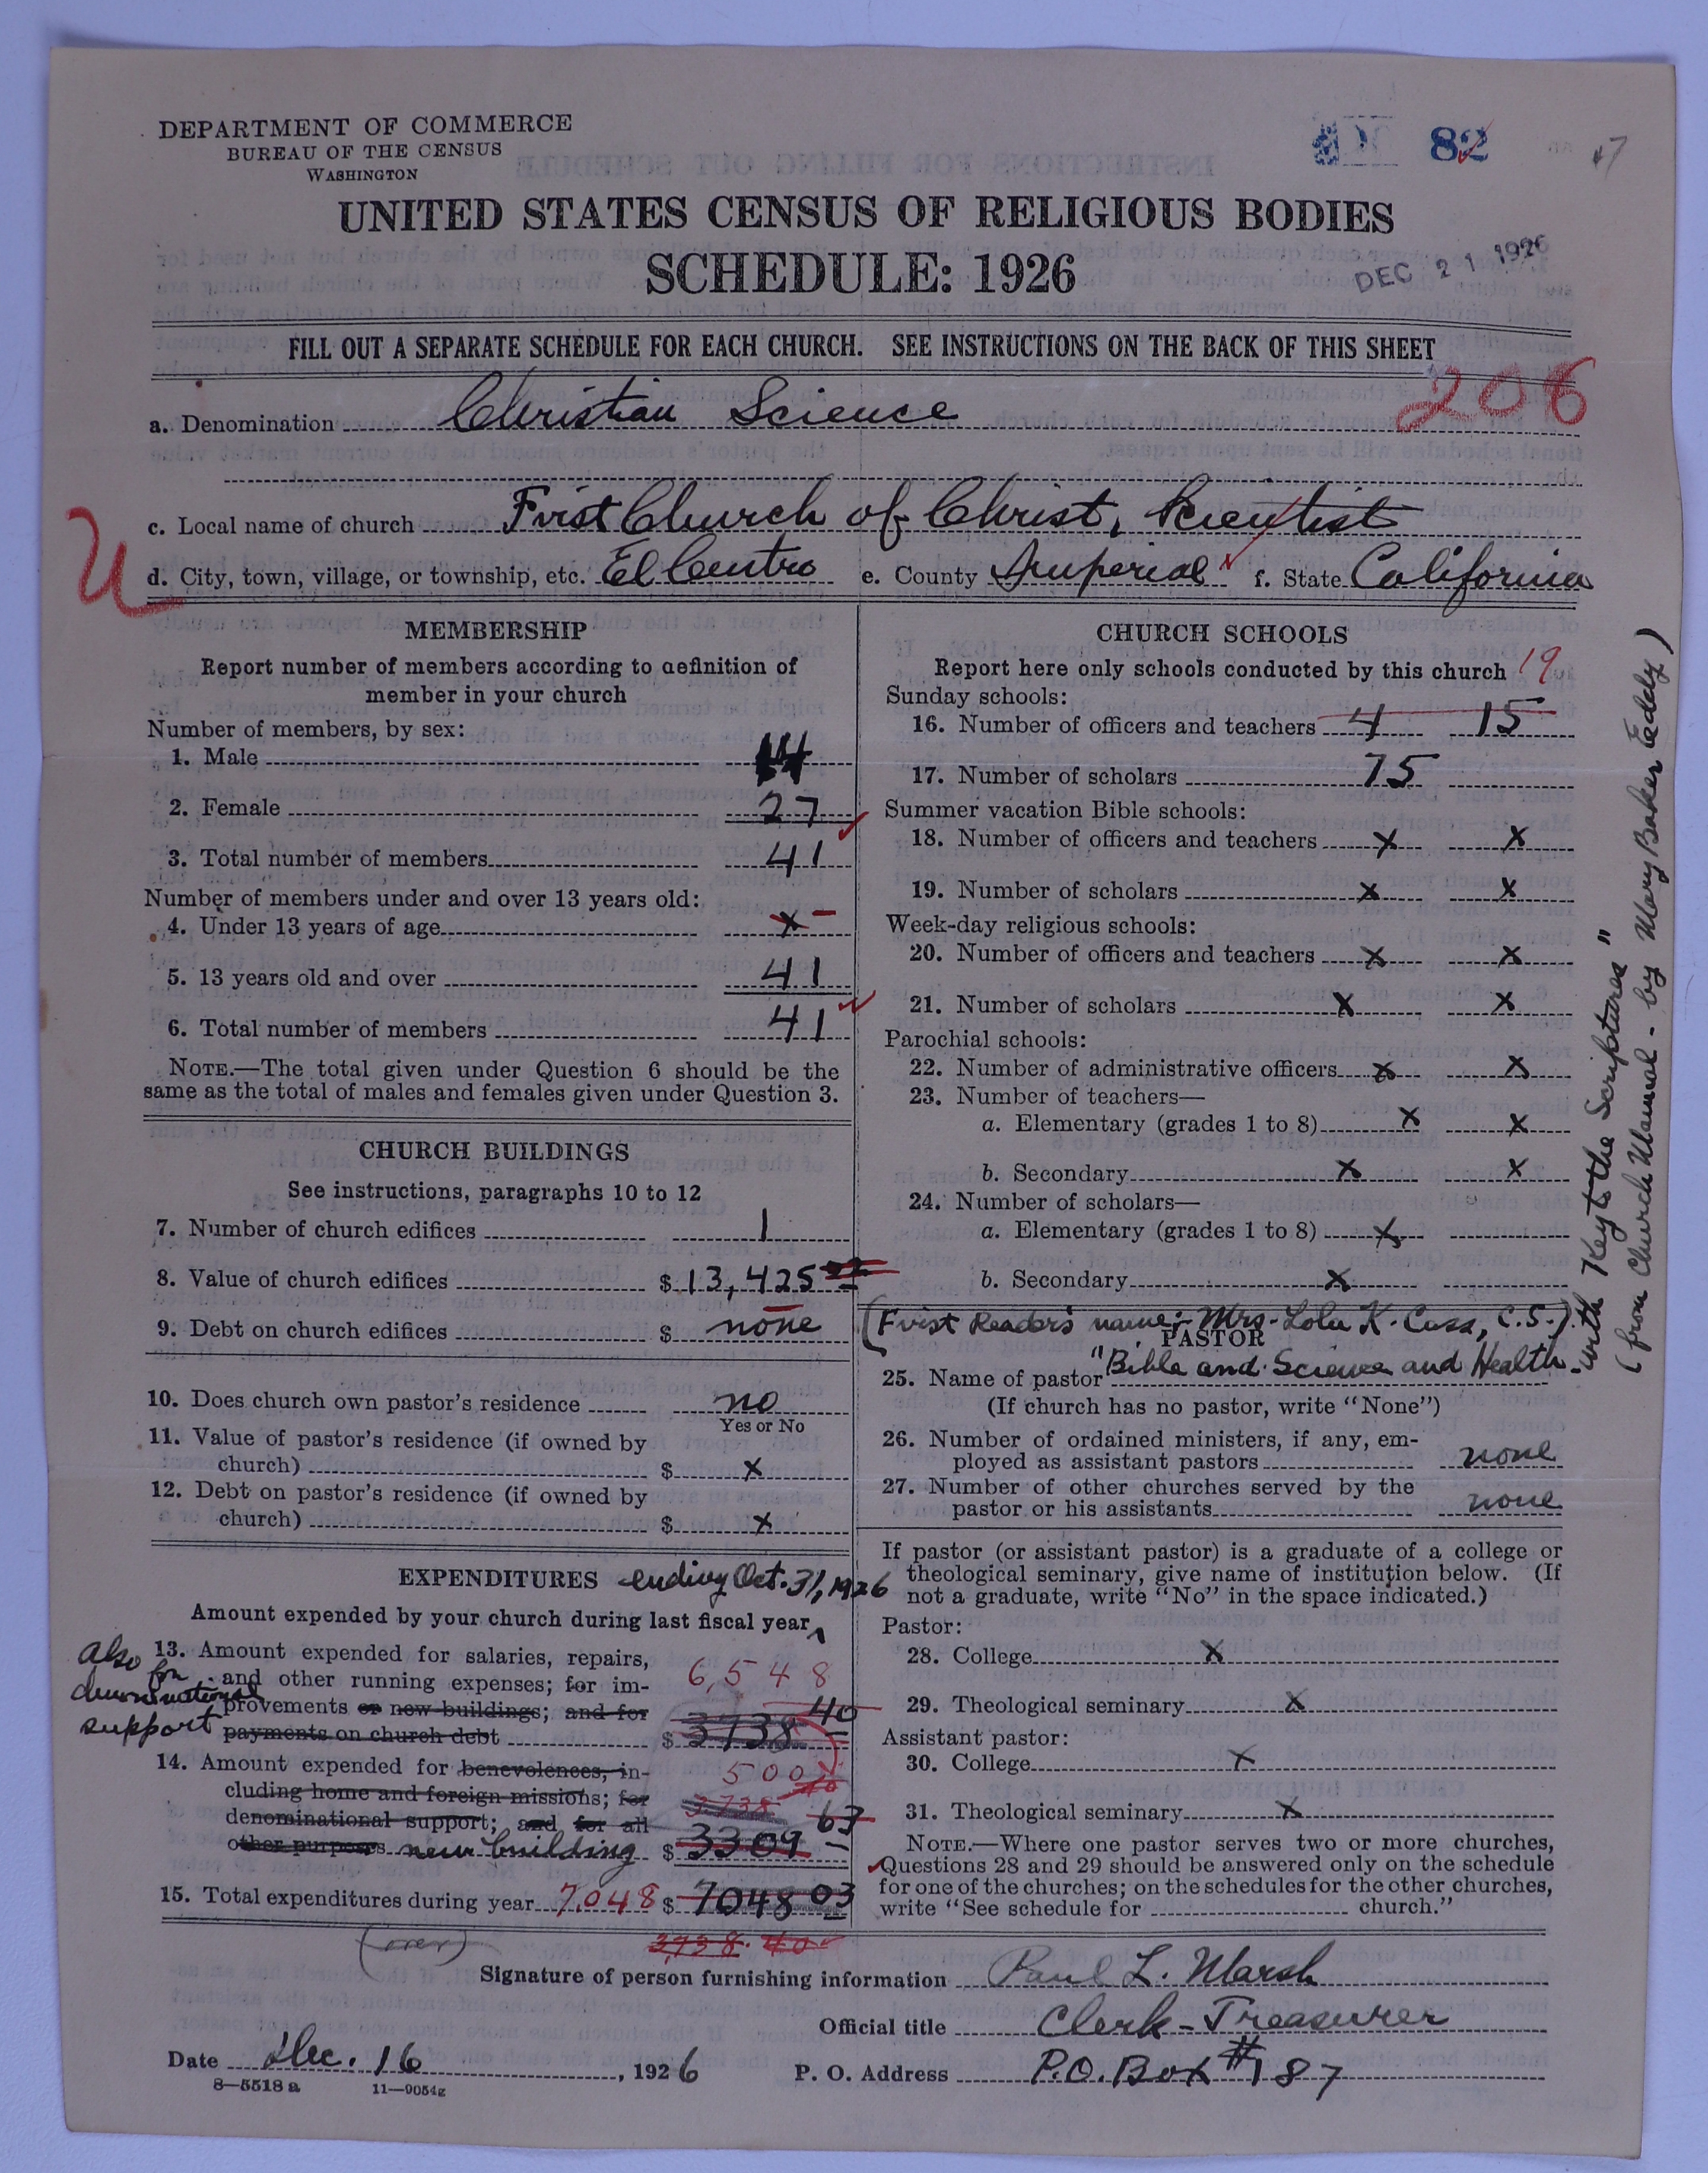 DEPARTMENT OF COMMERCE
BUREAU OF THE CENSUS
WASHINGTON
82
UNITED STATES CENSUS OF RELIGIOUS BODIES
SCHEDULE: 1926
DEC 21 1926
FILL OUT A SEPARATE SCHEDULE FOR EACH CHURCH. SEE INSTRUCTIONS ON THE BACK OF THIS SHEET
206
a. Denomination Christian Science
c. Local name of church First Church of Christ, Scientist
U
d. City, town, village, or township, etc. El Centro e. County Imperial f. State California
MEMBERSHIP
Report number of members according to definition of
member in your church
Number of members, by sex:
1. Male 14
2. Female 27
3. Total number of members 41
Number of members under and over 13 years old:
4. Under 13 years of age x –
5. 13 years old and over 41
6. Total number of members 41
NOTE.—The total given under Question 6 should be the
same as the total of males and females given under Question 3.
CHURCH BUILDINGS
See instructions, paragraphs 10 to 12
7. Number of church edifices 1
8. Value of church edifices $ 13,425
9. Debt on church edifices $ none
10. Does church own pastor's residence no
Yes or No
11. Value of pastor's residence (if owned by
church) $ x
12. Debt on pastor's residence (if owned by
church) $ x
EXPENDITURES ending Oct. 31, 1926
Amount expended by your church during last fiscal year
also for denominational support
13. Amount expended for salaries, repairs,
and other running expenses; for im-
provements or new buildings; and for
payments on church debt $ 3738 40
6,548
14. Amount expended for benevolences, in-
cluding home and foreign missions; for
denominational support; and for all
other purposes new building $ 3309 63
500
3738 40
15. Total expenditures during year 7,048 $ 7048 03
(over)
3,738.40
CHURCH SCHOOLS
Report here only schools conducted by this church
19
Sunday schools:
16. Number of officers and teachers 4 15
17. Number of scholars 75
Summer vacation Bible schools:
18. Number of officers and teachers x x
19. Number of scholars x x
Week-day religious schools:
20. Number of officers and teachers x x
21. Number of scholars x x
Parochial schools:
22. Number of administrative officers x x
23. Number of teachers—
a. Elementary (grades 1 to 8) x x
b. Secondary x x
24. Number of scholars—
a. Elementary (grades 1 to 8) x
b. Secondary x
(First Reader's name:- Mrs. Lola K. Cuss, C.S.)
PASTOR
25. Name of pastor "Bible and Science and Health
with Key to the Scriptures"
(from Church Manual - by Mary Baker Eddy)
(If church has no pastor, write "None")
26. Number of ordained ministers, if any, em-
ployed as assistant pastors none
27. Number of other churches served by the
pastor or his assistants none
If pastor (or assistant pastor) is a graduate of a college or
theological seminary, give name of institution below. (If
not a graduate, write "No" in the space indicated.)
Pastor:
28. College x
29. Theological seminary x
Assistant pastor:
30. College x
31. Theological seminary x
NOTE.—Where one pastor serves two or more churches,
Questions 28 and 29 should be answered only on the schedule
for one of the churches; on the schedules for the other churches,
write "See schedule for church."
Signature of person furnishing information Paul L. Marsh
Official title Clerk-Treasurer
Date Dec. 16, 1926 P. O. Address P.O. Box #187
8—5518 a 11—9054g